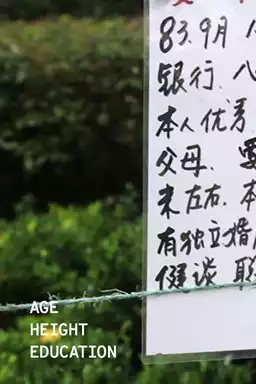 83.9月
银行.八
本人优秀
父母.要
米左右.本
有独立婚
健谈 联
AGE
HEIGHT
EDUCATION